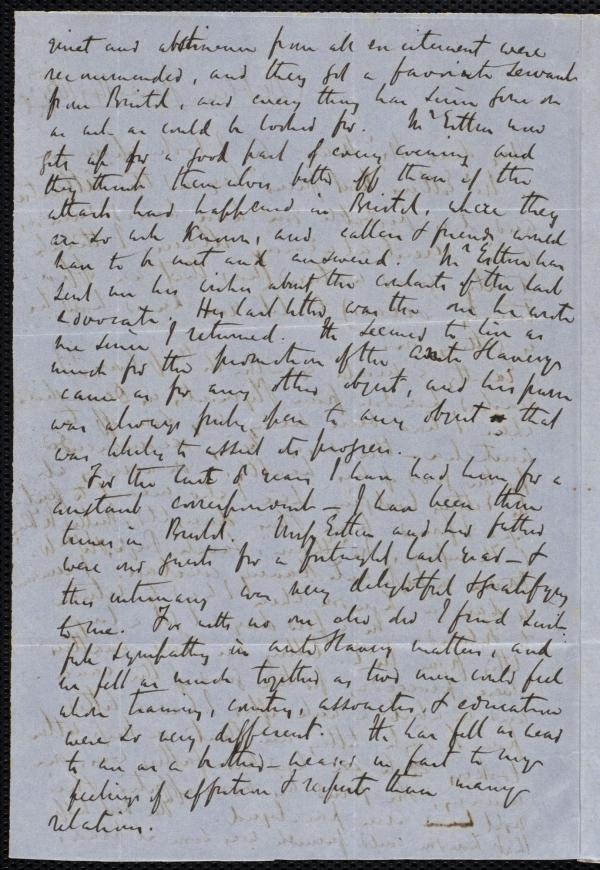 quiet and abstinence from all excitement were
recommended, and they got a favorite servant
from Bristol, and every thing has since gone on
as well as could be looked for. Mr Estlin now
gets up for a good part of every evening and
they think themselves better off than if the
attack had happened in Bristol, where they
are so well known, and callers & friends would
have to be met and answered. Mr Estlin has
sent me his wishes about the contents of the last
Advocate. His last letter was the one he wrote
me since I returned. He seemed to live as
much for the promotion of the anti Slavery
cause as for any other object, and his purse
was always freely open to any object that
was likely to assist its progress.
For the last 8 years I have had him for a
constant correspondent – I have been three
times in Bristol. Miss Estlin and her father
were our guests for a fortnight last year – &
this intimacy was very delightful & gratifying
to me. For with no one else did I find such
full sympathy in anti Slavery matters, and
we felt as much together as two men could feel
whose training, country, associates, & education
were so very different. He has felt as dear
to me as a brother – nearer in fact to my
feelings of affection & respect than many
relations.